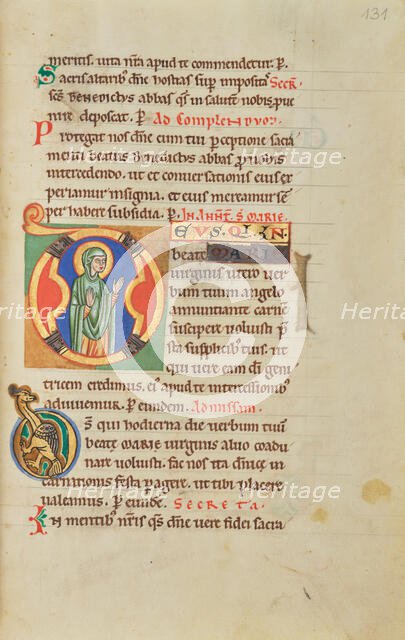 131
meritis. vita nr̄a apud te commendetur. P.
Sacris altarib; dn̄e hostias sup̄ imposita Secr̄.
sc̄s benedictus abbas qs̄ in salutē nobis p̄ue
nire deposcat. P. Ad Complendum.
Protegat nos dn̄e cum tui p̄ceptione sacra
menti beatus benedictus abbas pro nobis
intercedendo. ut et conversationis eius ex
periamur insignia. et eius mereamur se
per habere subsidia. P. In Annt̄. S Marie.
EVS. QI. R N
beatę MARI
virginis utero ver
bum tuum angelo
annuntiante carnē
suscipere voluisti. p̄
sta supplicib; tuis. ut
qui vere eam di geni
tricem credimus. ei apud te intercessionib;
adiuvemur. P. eundem. Ad missam.
Ds̄ qui hodierna die verbum tuū
beatę MARIE virginis alvo coadu
nare voluisti. fac nos ita dn̄icę in
carnationis festa pagere. ut tibi placere
valeamus. P. eundē. Secreta.
In mentib; nr̄is qs̄ dn̄e vere fidei sacra
Heritage
Heritage
Heritage
Heritage
Heritage
Heritage
Heritage
Heritage